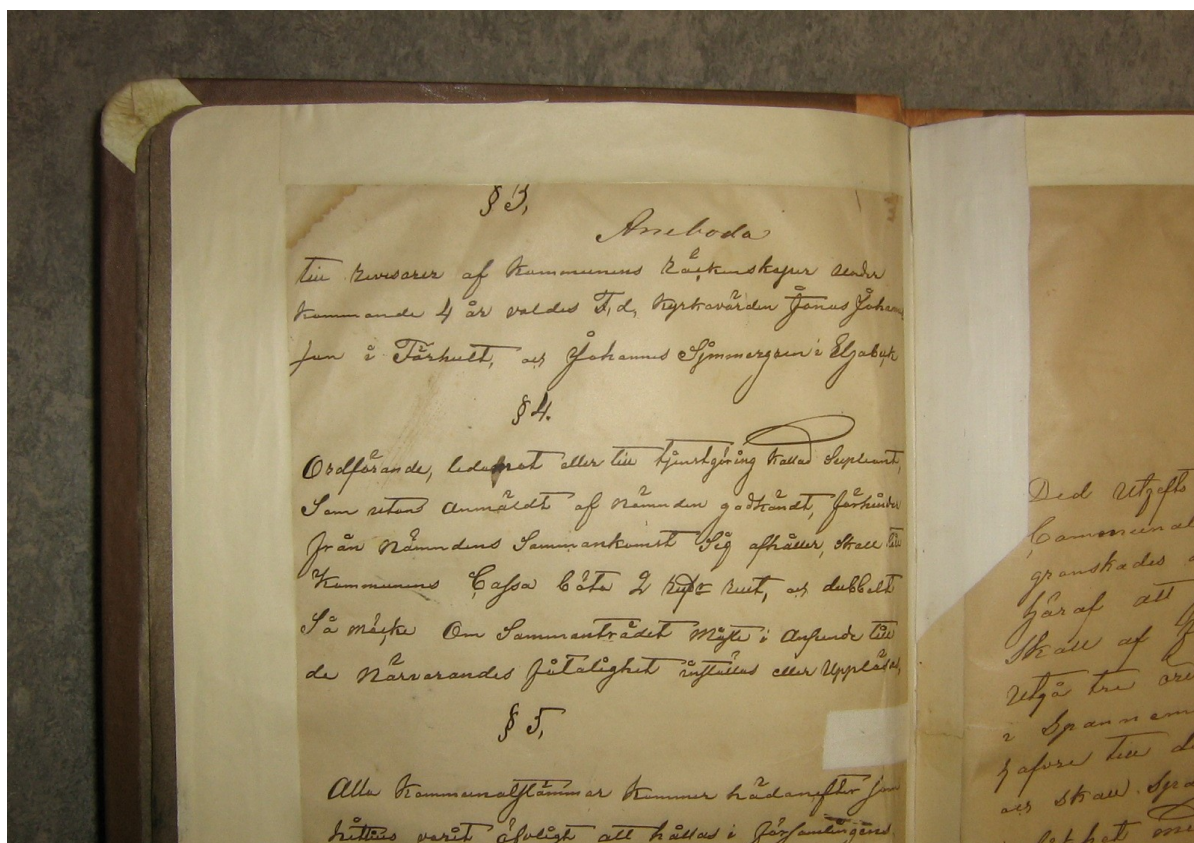 § 3,
Aneboda
till Revisorer af Kommunens Räkenskaper under
Kommande 4 år valdes F, d, Kyrkovärden Jonas Johan
son i Torhult, och Johannes i Eljabäck
§ 4.
Ordförande, ledamot eller till tjenstgöring Kallad Supleant,
Som utan Anmäldt af Nämnden godkändt, förhinder
från Nämndens Sammankomst Sig afhåller, skall till
Kommunens Cassa böta 2 rmt, och dubbelt
Så mycke Om Sammanträdet Måste i Anseende till
de Närvarandes fåtalighet inställas eller Upplösas,
§ 5,
Alla Kommunalstämmor Kommer hädanefter som
hittils varit öfligt att hållas i församlingens
Ded Utgifts
Communal
granskades
häraf att
Skall af
Utgå tre öre
i Spannem
hafore till
och skall
det